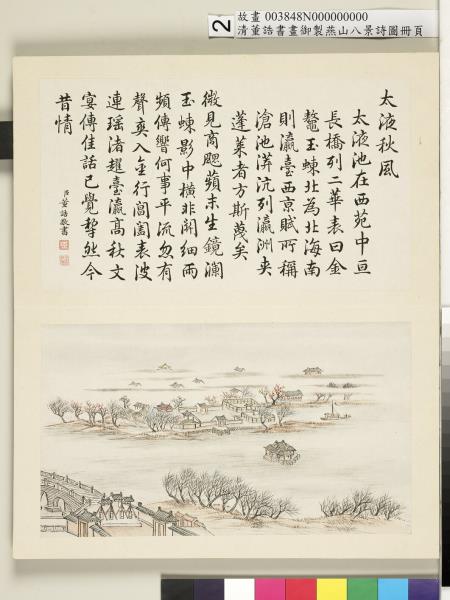 2
故畫 003848N000000000
清董誥書畫御製燕山八景詩圖冊頁
太液秋風
太液池在西苑中亘
長橋列二華表曰金
鰲玉蝀北為北海南
則瀛臺西京賦所稱
滄池漭沆列瀛洲夾
蓬萊者方斯蔑矣
微見商颸蘋末生鏡瀾
玉蝀影中橫非關細雨
頻傳響何事平流忽有
聲爽入金行閶闔表波
連瑤渚趯臺瀛高秋文
宴傳佳話已覺犂然今
昔情
臣董誥敬書